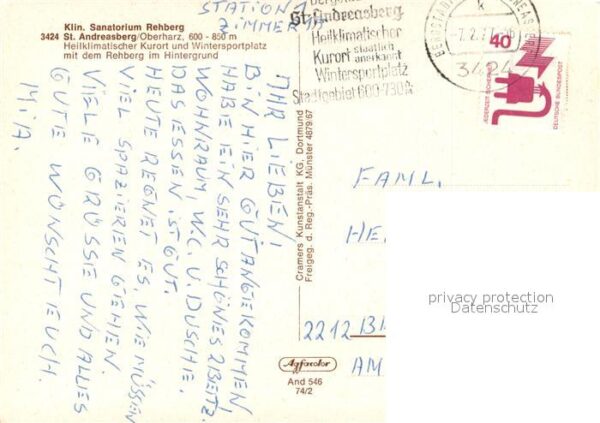 Klin. Sanatorium Rehberg
3424 St. Andreasberg/Oberharz, 600 - 850 m
Heilklimatischer Kurort und Wintersportplatz
mit dem Rehberg im Hintergrund
STATION 1
ZIMMER
IHR LIEBEN!
BIN HIER GUT ANGEKOMMEN,
HABE EIN SEHR SCHÖNES 2BETTZ.
WOHNRAUM, W.C. U. DUSCHE.
DAS ESSEN IST GUT.
HEUTE REGNET ES, WIE MÜSSEN
VIEL SPAZIEREN GEHEN.
VIELE GRÜSSE UND ALLES
GUTE WÜNSCHT EUCH.
MIA.
Cramers Kunstanstalt KG, Dortmund
Freigeg. d. Reg.-Präs. Münster 4879/67
St. Andreasberg
Heilklimatischer
Kurort staatlich
anerkannt
Wintersportplatz
Stadtgebiet 600-730
k
3424
40
JEDERZEIT SICHERHEIT
DEUTSCHE BUNDESPOST
FAML.
HE
2212
AM
Agfacolor
And 546
74/2
privacy protection
Datenschutz